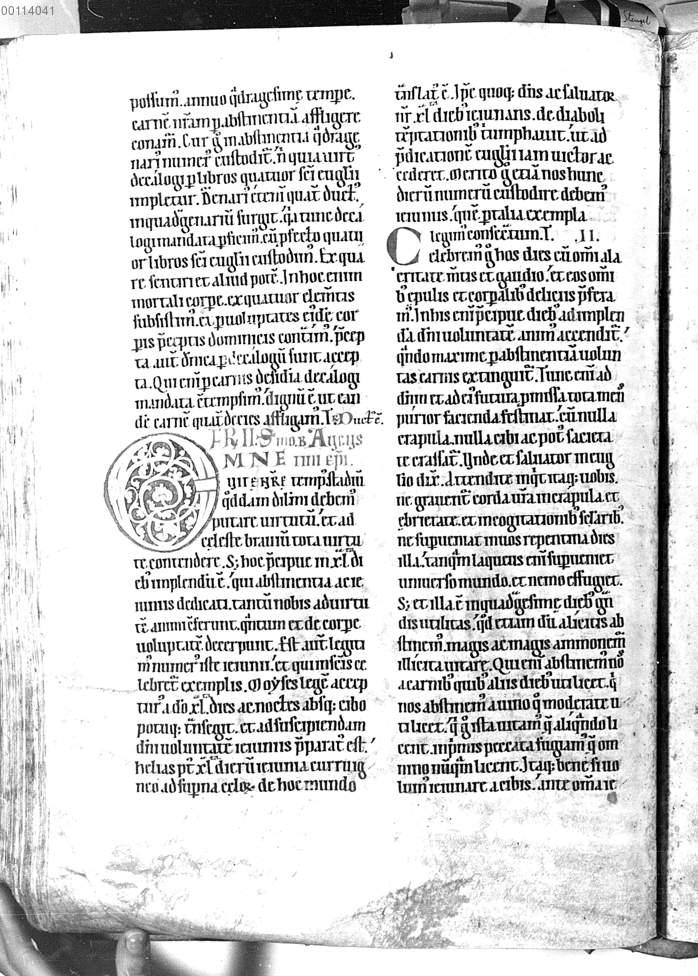 00114041
Stengel
possum᷒. annuo q̄dragesime tempe.
carnē nr̄am p abstinentiā affligere
conam᷒. Cur g̊ in abstinentia q̄drage
nari᷒ numer᷒ custodit᷒.
decalogi p libros quatuor sc̄i euglii
impletur. Denari᷒ etenī quat᷒ duct᷒.
inquadgenariū surgit. q̇a tunc deca
logi mandata pficim᷒. cū pfecto quatu
or libros sc̄i euglii custodim᷒. Ex qua
re sentiri et aliud potē. In hoc enim
mortali corpe. ex quatuor elem̄tis
subsistim᷒. et p uoluptates eide cor
pis p̄ceptis dominicis contim᷒. p̄cep
ta. aut̄ dn̄ica p decalogū sunt accep
ta. Qui eni p carnis desidia decalogi
mandata ētempsim᷒. dignū ē ut ean
dē carnē quat᷒ decies affligam᷒.
M N E IIII epi.
tempº stadiū
q̇ddam diīni debem᷒
putare uirtutū. et ad
celeste brauiū tota uirtu
te contendere. S; hoc p̄cipue in xl. di
eb᷒ implendū ē. qui abstinentia ac ie
iuniis dedicati. tantū nobis ad uirtu
tē animi ēferunt. q̇ntum et de corpe
uoluptatē decerpunt. Est aut̄ legiti
m᷒ numer᷒ iste ieiunii. et qui in sc̄is ce
lebret᷒ exemplis. Moyses legē accep
tur᷒ a dō xl. dies ac noctes absq; cibo
potuq; t̄nsegit. et ad suscipiendam
dn̄i uoluntatē ieiuniis p̄parat᷒ est.
helias pt᷒ xl. dierū ieiunia curru ig
neo ad supna celoꝝ de hoc mundo
t̄nslat᷒ ē. Ip̄e quoq; dn̄s ac saluator
nr̄. xl. dieb᷒ ieiunans. de diaboli
tēptationib᷒ t̄umphauit. ut ad
p̄dicationē euglii iam uictor ac
cederet. Merito g̊ etiā nos hunc
dierū numerū custodire debem᷒
ieiuniis. quē p talia exempla
legim᷒ consec̄tum. T. II.
Celebrem᷒ g̊ hos dies cū omi ala
critate m̄tis et gaudio. et eos omi
b᷒ epulis et corpalib᷒ deliciis p̄fera
m᷒. In his eni p̄cipue dieb᷒ ad implen
dā dn̄i uoluntatē anim᷒ accendit᷒.
q̇ndo maxime p abstinentiā uolun
tas carnis extinguit᷒. Tunc eni ad
dn̄m et ad ea futura pmissa tota mens
purior facienda festinat. cū nulla
crapula. nulla cibi ac pot᷒ sacieta
te crassat᷒. Vnde et saluator in eug
lio dix᷒. Attendite inq̇t itaq; uobis.
ne grauent᷒ corda ur̄a in crapula et
ebrietate. et in cogitationib᷒ sc̄larib᷒.
ne supueniat in uos repentina dies
illa. tanq̇m laqueus eni supueniet
uniuerso mundo. et nemo effugiet.
S; et illa ē in quadgesime dieb᷒ gn̄
dis utilitas. q̇d etiam dū a licitis ab
stinem᷒. magis ac magis ammonem᷒
illicita uitare. Qui eni abstinem᷒ nō
a carnib᷒ quib᷒ aliis dieb᷒ uti licet. q̇
nos abstinem᷒ a uino q̇ moderate u
ti licet. q̇ g̊ ista uitam᷒ q̇ aliq̇ndo li
cent. inp̄mis peccata fugiam᷒ q̇ om
nino nūq̇m licent. Itaq; bene si uo
lum᷒ ieiunare a cibis. ante om̄a ie